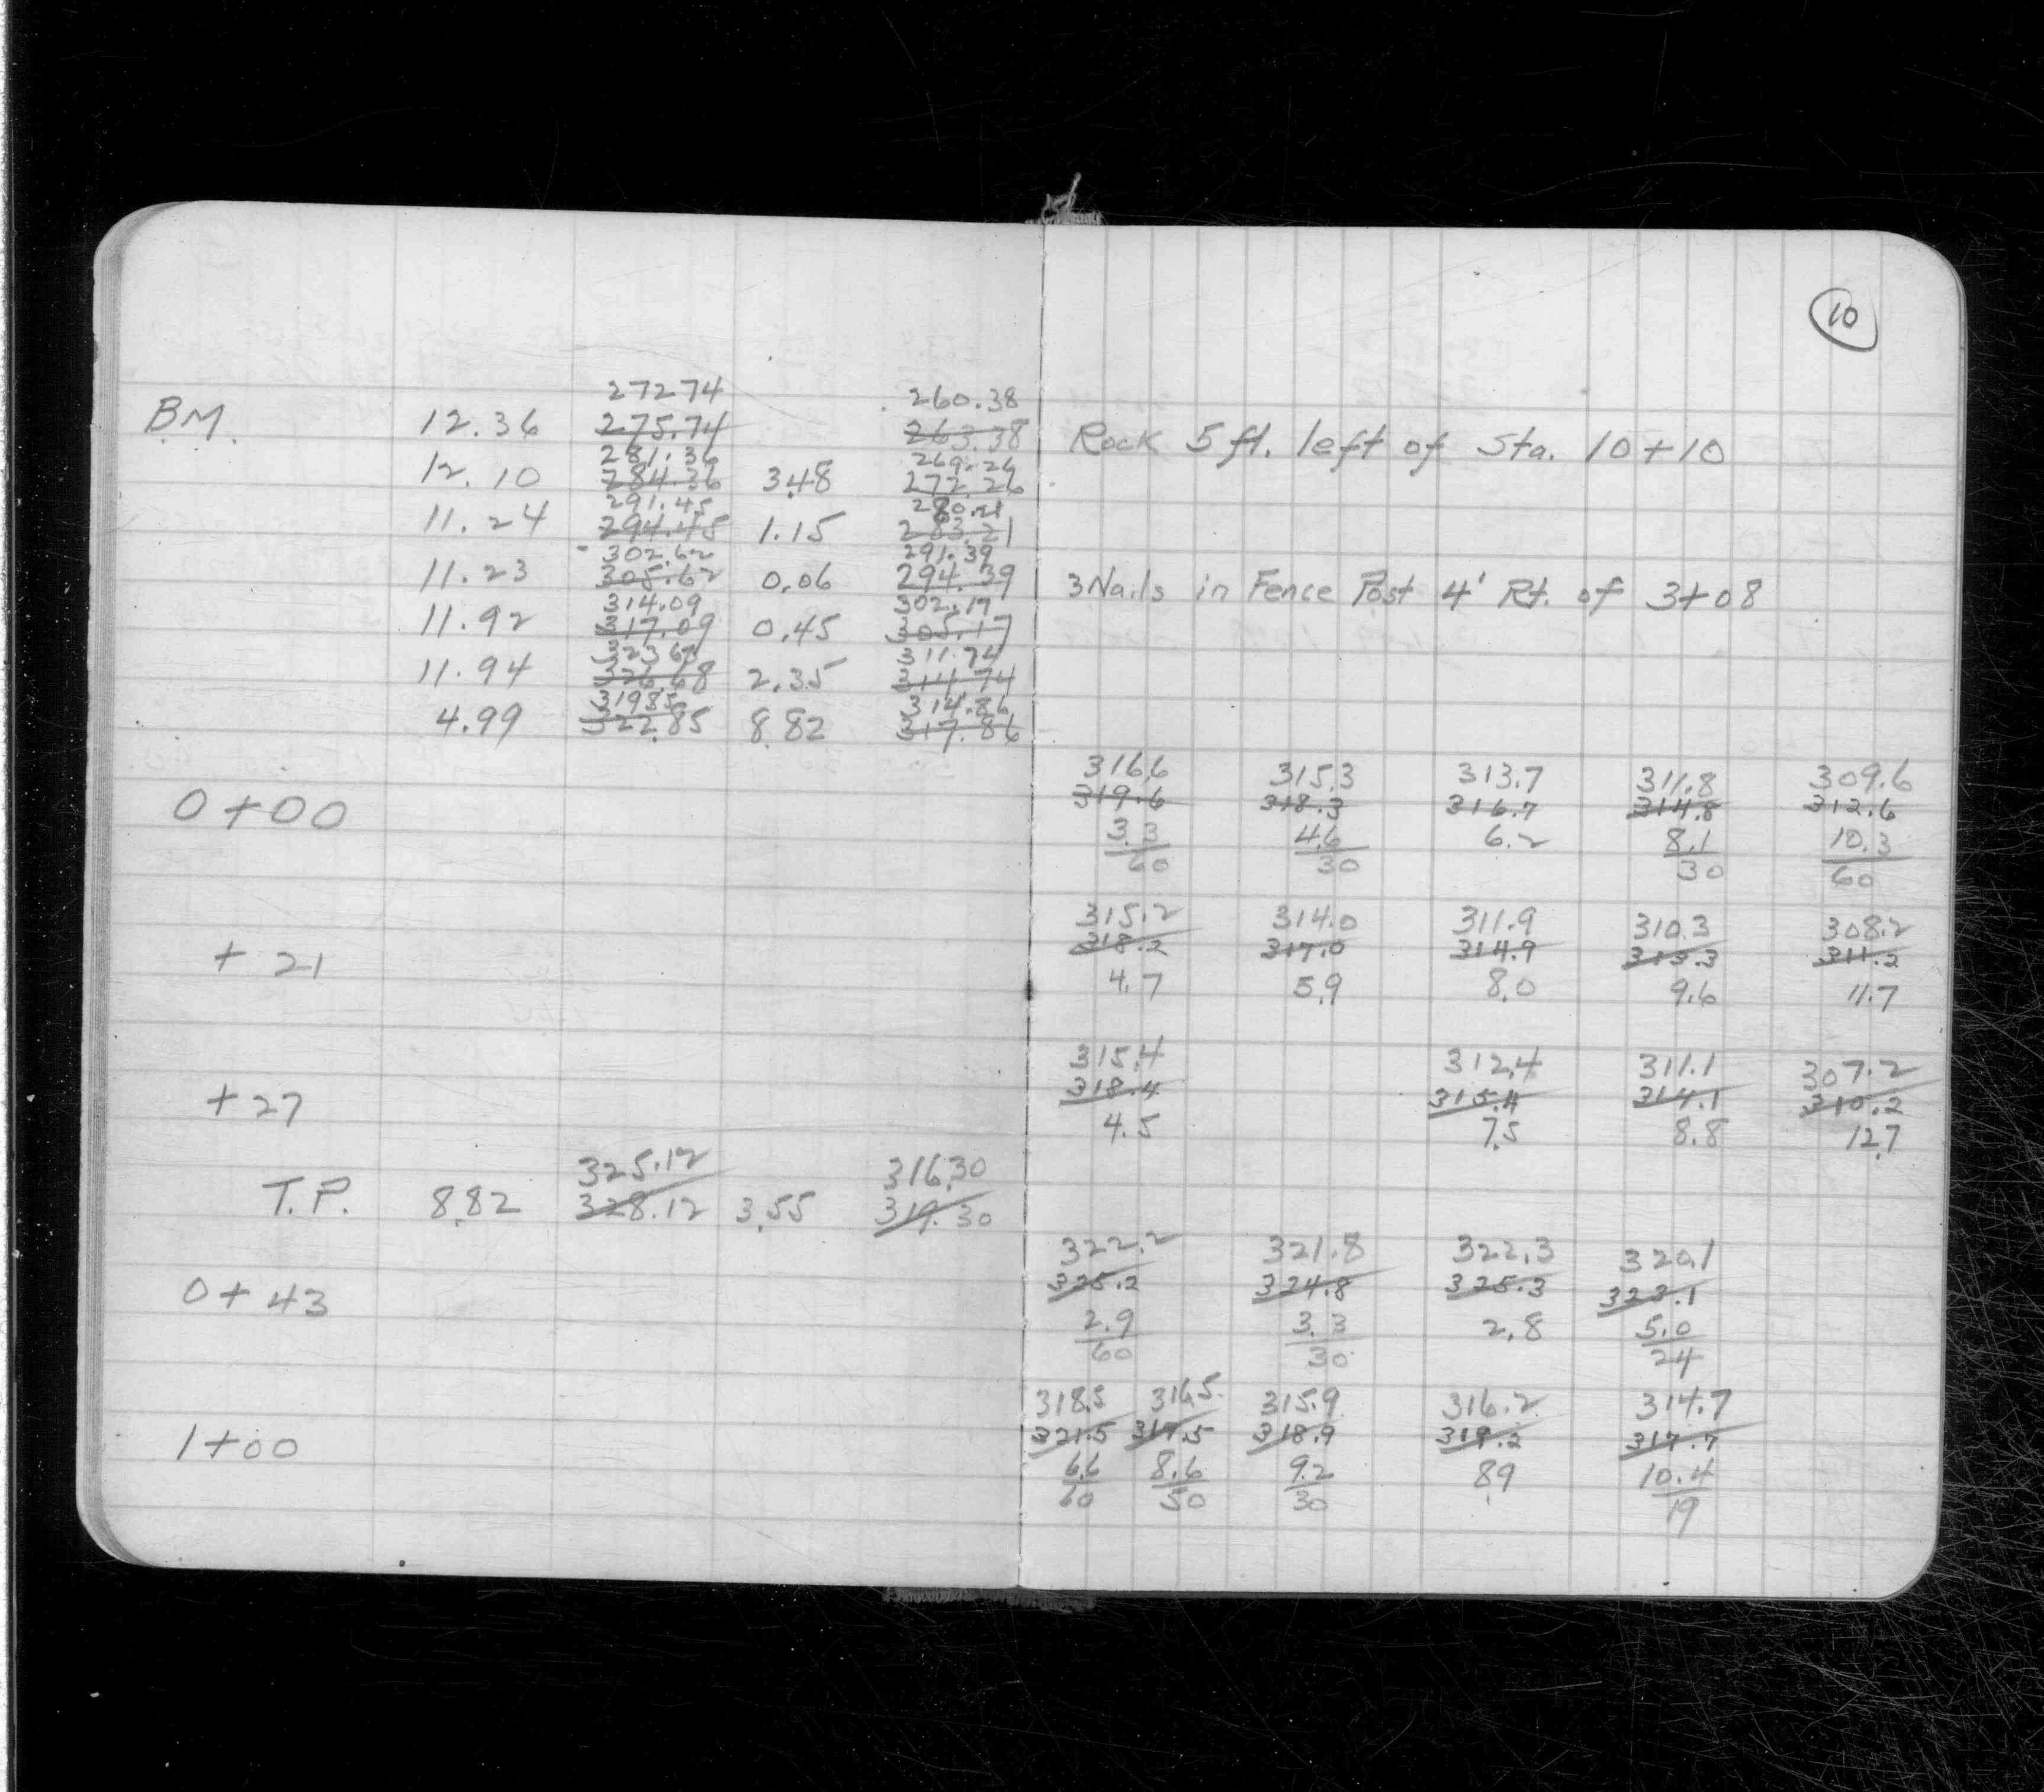 10
272.74 260.38
B.M. 12.36 275.74 263.38 Rock 5 ft. left of Sta. 10+10
281.36 269.26
12.10 284.36 3.48 272.26
291.45 280.21
11.24 294.45 1.15 283.21
302.62 291.39
11.23 305.62 0.06 294.39 3 Nails in Fence Post 4' Rt. of 3+08
314.09 302.17
11.92 317.09 0.45 305.17
323.68 311.74
11.94 326.68 2.35 314.74
319.85 314.86
4.99 322.85 8.82 317.86
316.6 315.3 313.7 311.8 309.6
0+00 319.6 318.3 316.7 314.8 312.6
3.3 4.6 6.2 8.1 10.3
60 30 30 60
315.2 314.0 311.9 310.3 308.2
+21 318.2 317.0 314.9 313.3 311.2
4.7 5.9 8.0 9.6 11.7
315.4 312.4 311.1 307.2
+27 318.4 315.4 314.1 310.2
4.5 7.5 8.8 12.7
325.12 316.30
T.P. 8.82 328.12 3.55 319.30
322.2 321.8 322.3 320.1
0+43 325.2 324.8 325.3 323.1
2.9 3.3 2.8 5.0
60 30 24
318.5 316.5 315.9 316.2 314.7
1+00 321.5 317.5 318.9 319.2 317.7
6.6 8.6 9.2 8.9 10.4
60 50 30 19